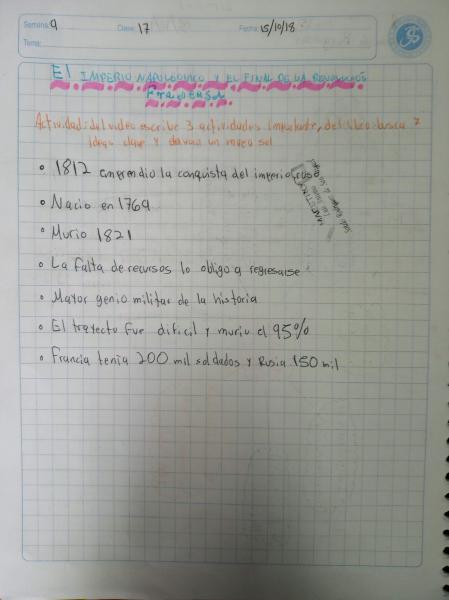 Semana: 9 Clase: 17 Fecha: 15/10/18
Tema:
El IMPERIO NAPOLEÓNICO Y EL FINAL DE LA REVOLUCION
FRANCESA
Actividad: del video escribe 3 actividades importante, del libro busca 7
ideas clave y
• 1812 emprendio la conquista del imperio ruso
• Nacio en 1769
• Murio 1821
• La falta de recursos lo obligo a regresarse
• Mayor genio militar de la historia
• El trayecto fue dificil y murio el 95%
• Francia tenia 200 mil soldados y Rusia 150 mil